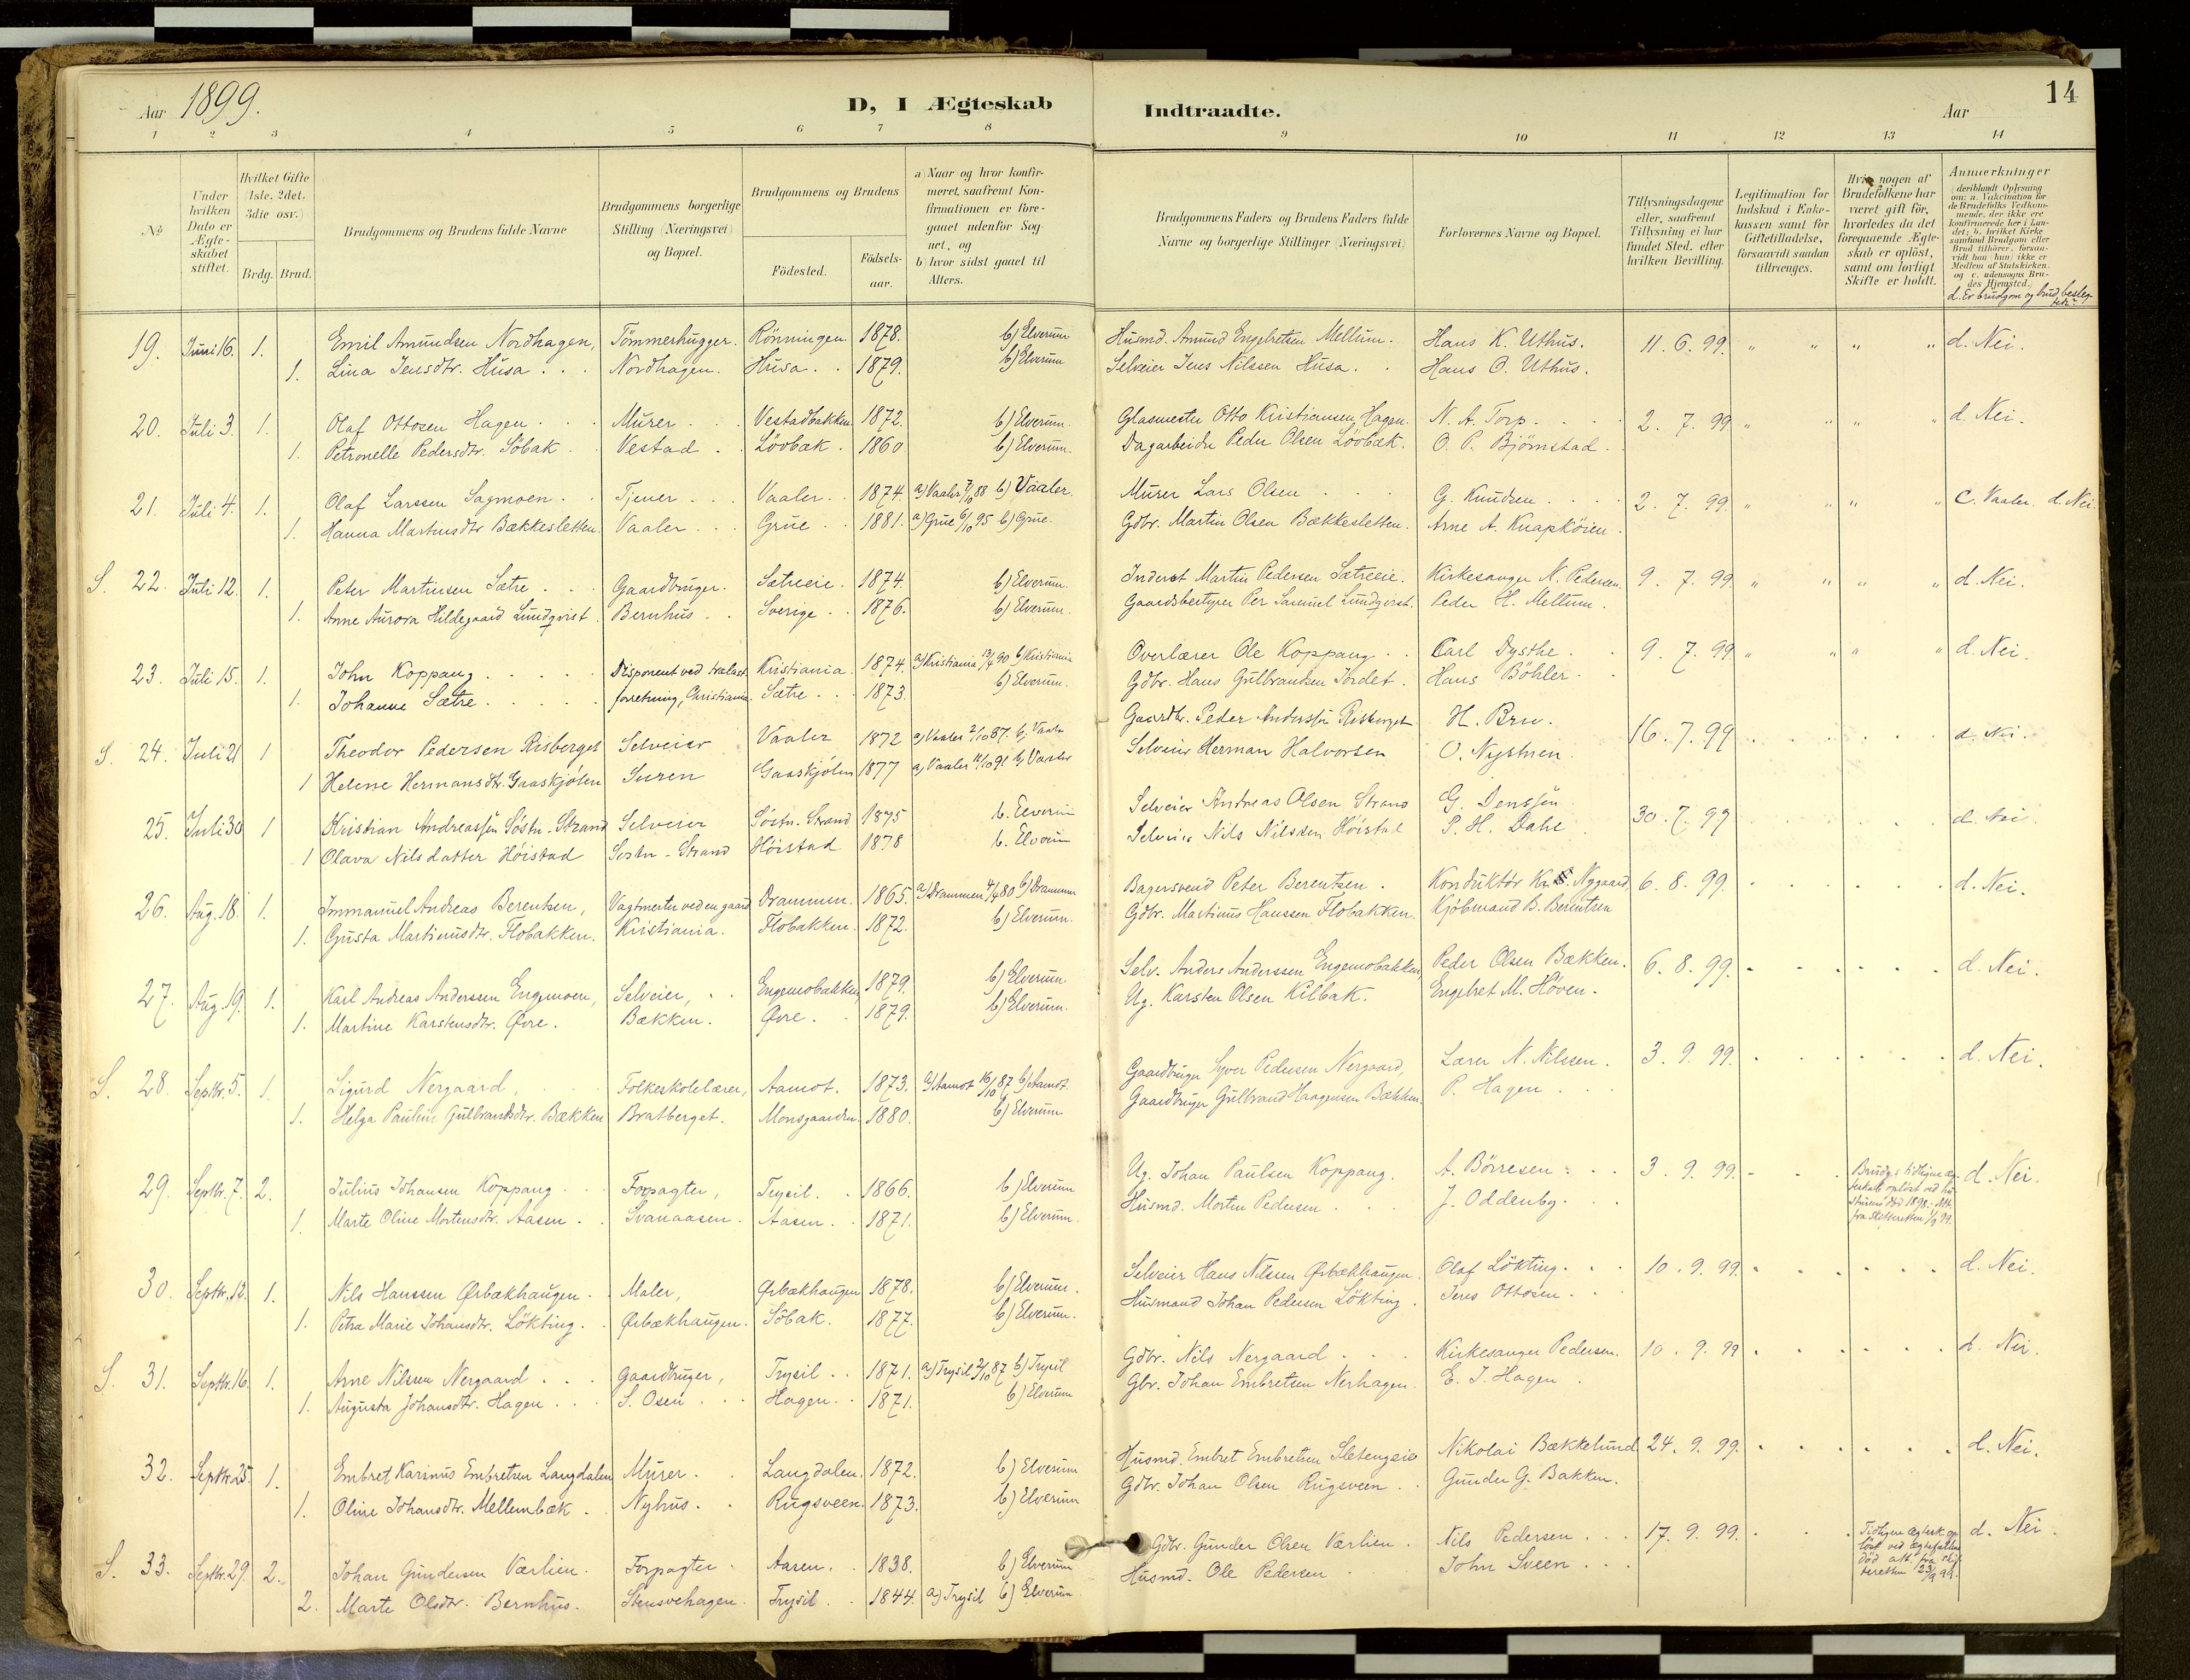 Aar 1899. D, I Ægteskab Indtraadte. Aar 14
1 2 3 4 5 6 7 8 9 10 11 12 13 14
No
Under hvilken Dato er Ægteskabet stiftet.
Hvilket Gifte (1ste, 2det, 3die osv.)
Brdg. Brud.
Brudgommens og Brudens fulde Navne
Brudgommens borgerlige Stilling (Næringsvei) og Bopæl.
Brudgommens og Brudens
Födested. Födsels-aar.
a) Naar og hvor konfirmeret, saafremt Konfirmationen er foregaaet udenfor Sognet, og
b) hvor sidst gaaet til Alters.
Brudgommens Faders og Brudens Faders fulde Navne og borgerlige Stillinger (Næringsvei)
Forlovernes Navne og Bopæl.
Tillysningsdagene eller, saafremt Tillysning ei har fundet Sted, efter hvilken Bevilling.
Legitimation for Indskud i Enkekassen samt for Giftetilladelse, forsaavidt saadan tiltrænges.
Hvis nogen af Brudefolkene har været gift för, hvorledes da det foregaaende Ægteskab er oplöst, samt om lovligt Skifte er holdt.
Anmærkninger (deriblandt Oplysning om: a. Vakcination for de Brudefolks Vedkommende, der ikke ere konfirmerede her i Landet; b. hvilket Kirkesamfund Brudgom eller Brud tilhörer, forsaavidt han (hun) ikke er Medlem af Statskirken, og c. udensogns Brudes Hjemsted.)
d. Er brudgom og brud beslegtede?
19. Juni 16. 1. Emil Amundsen Nordhagen, Tömmerhugger. Rönningen 1878. b) Elverum Husmd. Amund Engebretsen Mellum. Hans K. Uthus. 11. 6. 99. " " " " d. Nei.
1. Lina Jensdtr. Husa . . Nordhagen. Husa . . 1879. b) Elverum Selveier Jens Nilssen Husa. Hans O. Uthus.
20. Juli 3. 1. Olaf Ottosen Hagen . . . Murer . . . Vestadbakken 1872. b) Elverum. Glasmester Otto Kristiansen Hagen. N. A. Torp. 2. 7. 99 " " " " d. Nei.
1. Petronelle Pedersdtr. Söbak . Vestad . . Lövbæk . 1860 b) Elverum. Dagarbeider Peder Olsen Lövbæk. O. P. Björnstad.
21. Juli 4. 1. Olaf Larssen Sagmoen . . Tjener . . . Vaaler . . 1874. a) Vaaler 7/10 88 b) Vaaler. Murer Lars Olsen . . . G. Knudsen . . . 2. 7. 99. " " " " C. Vaaler. d. Nei.
1. Hanna Martinsdtr Bækkesletten. Vaaler . . Grue . . 1881. a) Grue 6/10 95 b) Grue. Gdbr. Martin Olsen Bækkesletten. Arne A. Knapköien.
S. 22. Juli 12. 1. Peter Martinsen Sætre . . . Gaardbruger. Sætreeie. 1874. b) Elverum. Inderst Martin Pedersen Sætreeie. Kirkesanger N. Pedersen. 9. 7. 99 " " " " d. Nei.
1. Anne Aurora Hildegaard Lundqvist. Bernhus . . Sverige . . 1876. b) Elverum. Gaardsbestyrer Per Samuel Lundqvist. Peder H. Mellum.
23. Juli 15. 1. John Koppang . . . . . Disponent ved trælast- Kristiania. 1874. a) Kristiania 13/4 90 b) Kristiania Overlærer Ole Koppang . . Carl Dysthe . . 9. 7. 99 " " " " d. Nei.
1. Johanne Sætre . . . . . forretning, Christiania. Sætre . . . 1873. b) Elverum. Gdbr. Hans Gulbrandsen Jordet. Hans Böhler.
S. 24. Juli 21 1 Theodor Pedersen Risberget Selveier Vaaler 1872 a) Vaaler 2/10 87. b) Vaaler Gaardbr. Peder Anderssen Risberget H. Bru. 16. 7. 99 . . . . d. Nei.
1 Helene Hermansdtr. Gaaskjölen Suren Gaaskjölen 1877 a) Vaaler 11/10 91 b) Vaaler Selveier Herman Halvorsen O. Nystuen.
25. Juli 30 1 Kristian Andreassen Söstu-Strand Selveier Söstu. Strand 1875 b. Elverum Selveier Andreas Olsen Strand G. Jenssen 30. 7. 99 d. Nei.
1 Olava Nilsdatter Höistad Söstu-Strand Höistad 1878 b. Elverum Selveier Nils Nilssen Höistad P. H. Dahl
26. Aug. 18. 1. Immanuel Andreas Berentsen, Vagtmester ved en gaard Drammen. 1865. a) Drammen 4/4 80 b) Drammen Bagersvend Peter Berentsen. Konduktör Kr. Nygaard, 6. 8. 99. d. Nei.
1. Gusta Martinusdtr. Flobakken. Kristiania. Flobakken. 1872. b) Elverum. Gdbr. Martinus Hanssen Flobakken. Kjöbmand B. Berentsen
27. Aug. 19. 1. Karl Andreas Anderssen Engemoen, Selveier, . . Engemobakken 1879. b) Elverum. Selv. Anders Anderssen Engemobakken, Peder Olsen Bækken. 6. 8. 99. d. Nei.
1. Martine Karstensdtr. Øvre. Bækken. Øvre. . 1879. b) Elverum. Ug. Karsten Olsen Kilbak. Engebret M. Hoven.
S. 28. Septbr. 5. 1. Sigurd Nergaard, Folkeskolelærer, Aamot. 1873. a) Aamot 16/10 87 b) Aamot. Gaardbruger Syver Pedersen Nergaard, Lærer N. Nilssen. 3. 9. 99. d. Nei.
1. Helga Pauline Gulbrandsdtr. Bækken Bratberget. Monsgaarden. 1880. b) Elverum Gaardbruger Gulbrand Haagensen Bækken. P. Hagen.
29. Septbr. 7. 2. Julius Johansen Koppang . . . Forpagter, Trysil. . 1866. b) Elverum Ug. Johan Paulsen Koppang. A. Börresen . . 3. 9. 99. Brudg.s tidligere ægteskab oplöst ved hustruens död 1898. Att. fra skifteretten 1/9 99. d. Nei.
1. Marte Oline Mortensdtr. Aasen . . Svanaasen. Aasen. . 1871. b) Elverum. Husmd. Morten Pedersen . . . J. Oddenby.
30. Septbr. 12. 1. Nils Hanssen Ørbækhaugen. Maler, Ørbækhaugen 1878. b) Elverum. Selveier Hans Nilssen Ørbækhaugen. Olaf Lökting. . . 10. 9. 99. d. Nei.
1. Petra Marie Johansdtr. Lökting. Ørbækhaugen. Söbak. 1877. b) Elverum. Husmand Johan Pedersen Lökting. Jens Ottosen . .
S. 31. Septbr. 16. 1. Arne Nilssen Nergaard . . . Gaardbruger, Trysil . . 1871. a) Trysil 2/10 87 b) Trysil Gdbr. Nils Nergaard . . . Kirkesanger Pedersen. 10. 9. 99 d. Nei.
1. Augusta Johansdtr. Hagen . . . S. Osen . . . Hagen. . 1871. b) Elverum Gbr. Johan Embretsen Nerhagen. E. J. Hagen.
32. Septbr. 25 1. Embret Karinus Embretsen Langdalen Murer. . Langdalen. 1872. b) Elverum Husmd. Embret Embretsen Sletengeie Nikolai Bækkelund 24. 9. 99. d. Nei.
1. Oline Johansdtr. Mellembæk . Nyhus. . Rugsveen. 1873. b) Elverum Gdbr. Johan Olsen Rugsveen . . Gunder G. Bakken.
S. 33. Septbr. 29. 2. Johan Gundersen Værlien. Forpagter. Aasen. . 1838. b) Elverum Gdbr. Gunder Olsen Værlien. Nils Pedersen . . . 17. 9. 99. Tidligere ægtesk. oplöst ved ægtefællens död att. fra skifteretten 23/9 99. d. Nei.
2. Marte Olsdtr. Bernhus. Stensvehagen. Trysil . . 1844. a) Trysil b) Elverum Husmd. Ole Pedersen . John Sveen . . .